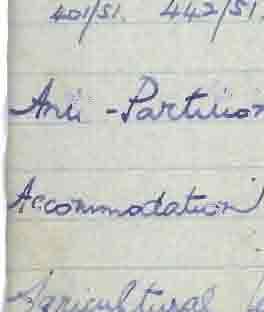 401/51. 442/51.
Anti-Partition
Accommodation
Agricultural